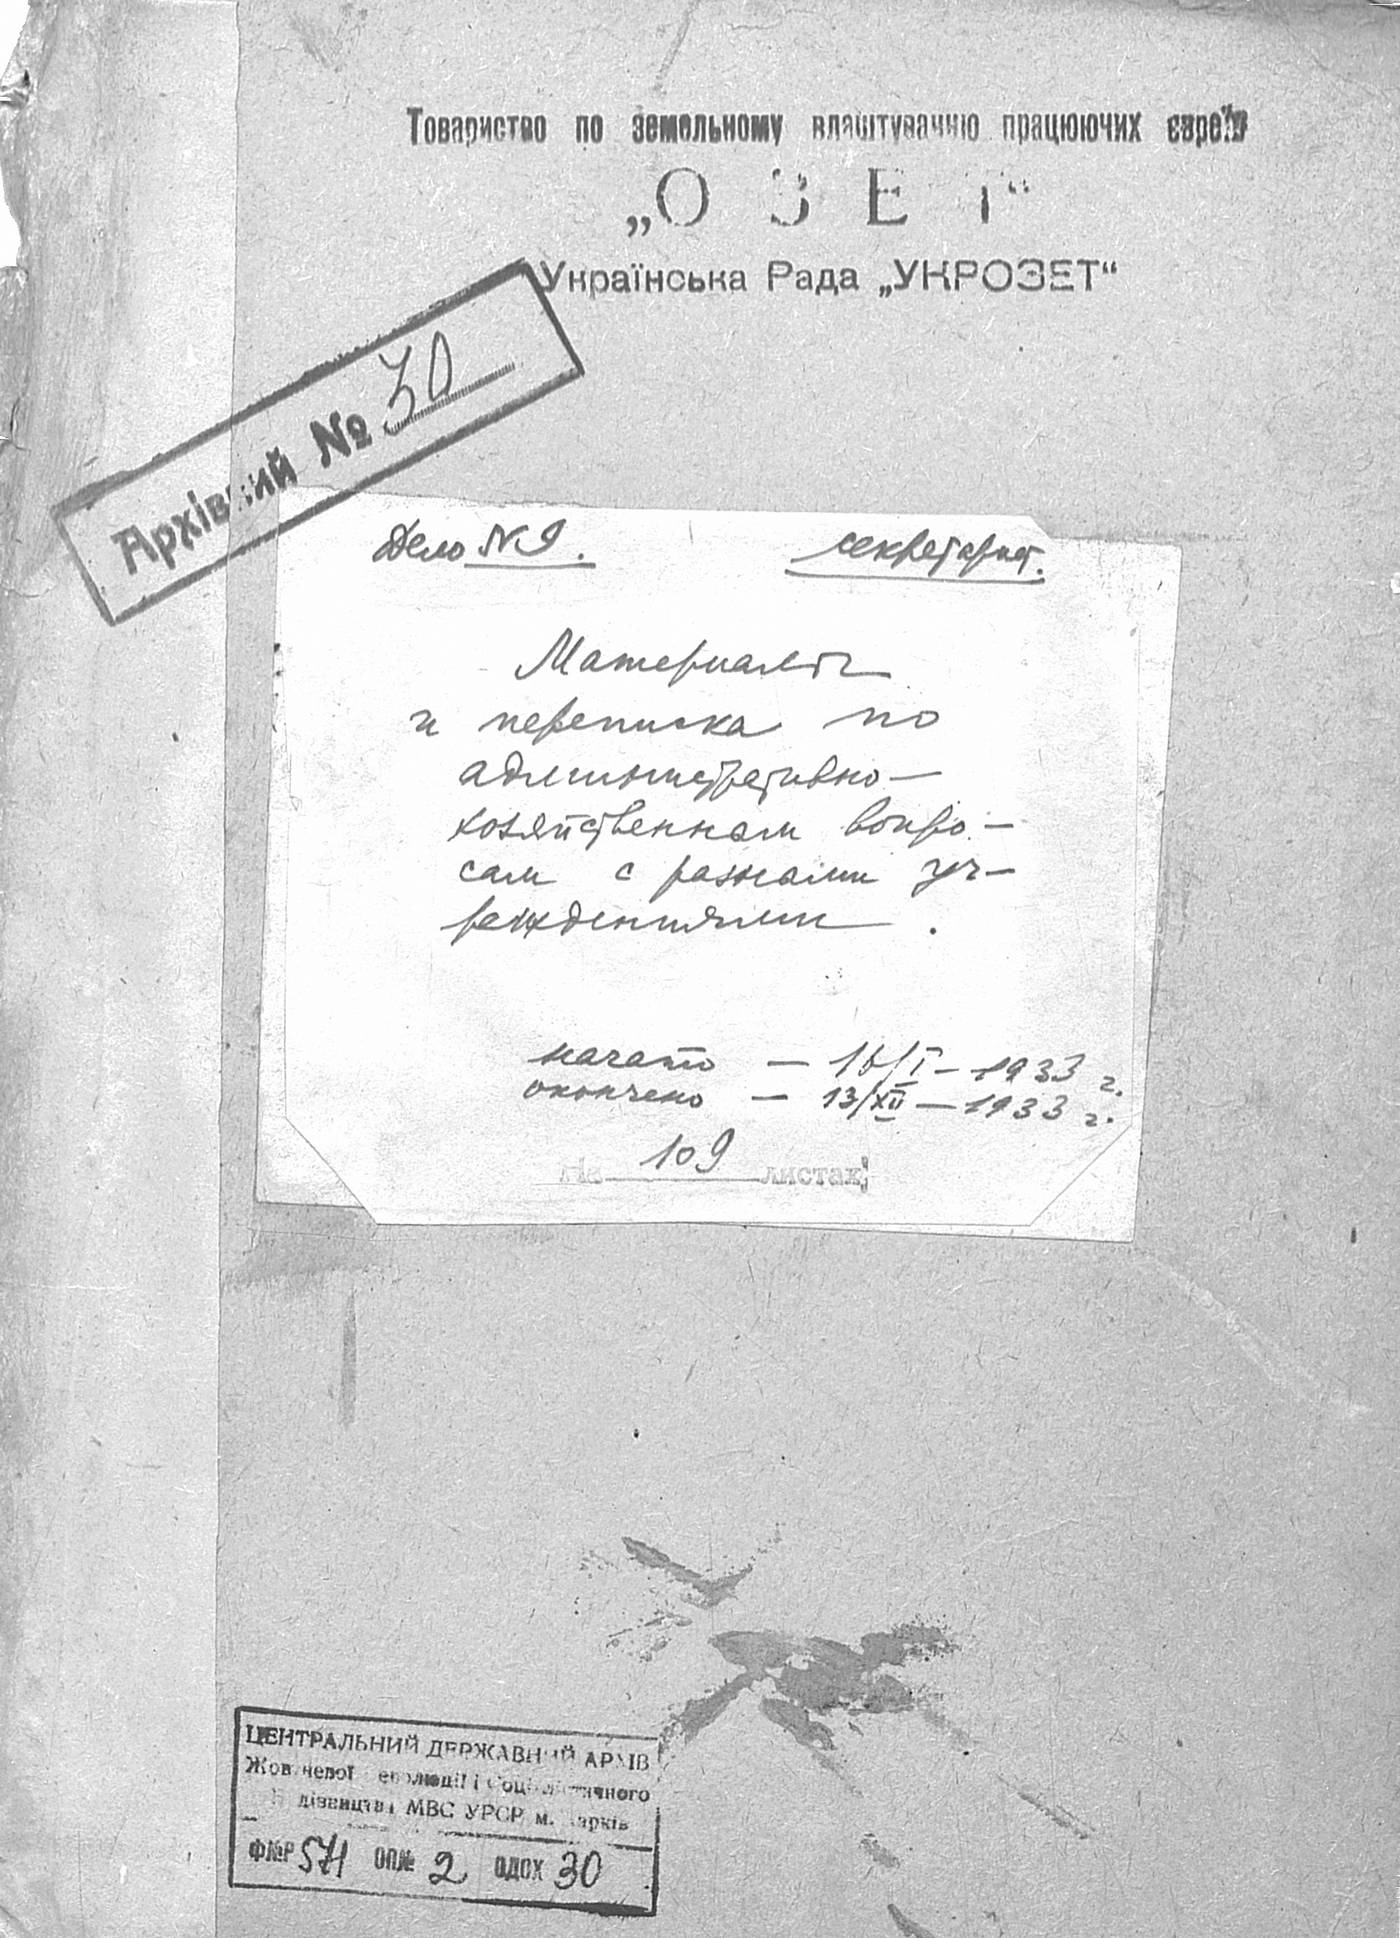 Товариство по земельному влаштуванню працюючих євреїв
„О З Е Т“
Українська Рада „УКРОЗЕТ“
Архівний № 30
Дело № 9. секретариат.
Материалы
и переписка по
административно—
хозяйственным вопро—
сам с разными уч—
реждениями.
начато — 16/I — 1933 г.
окончено — 13/XII — 1933 г.
На 109 листах
ЦЕНТРАЛЬНИЙ ДЕРЖАВНИЙ АРХІВ
Жовтневої революції і Соціалістичного
Будівництва МВС УРСР м. Харків
Ф№Р 571 ОП№ 2 ОДОХ 30